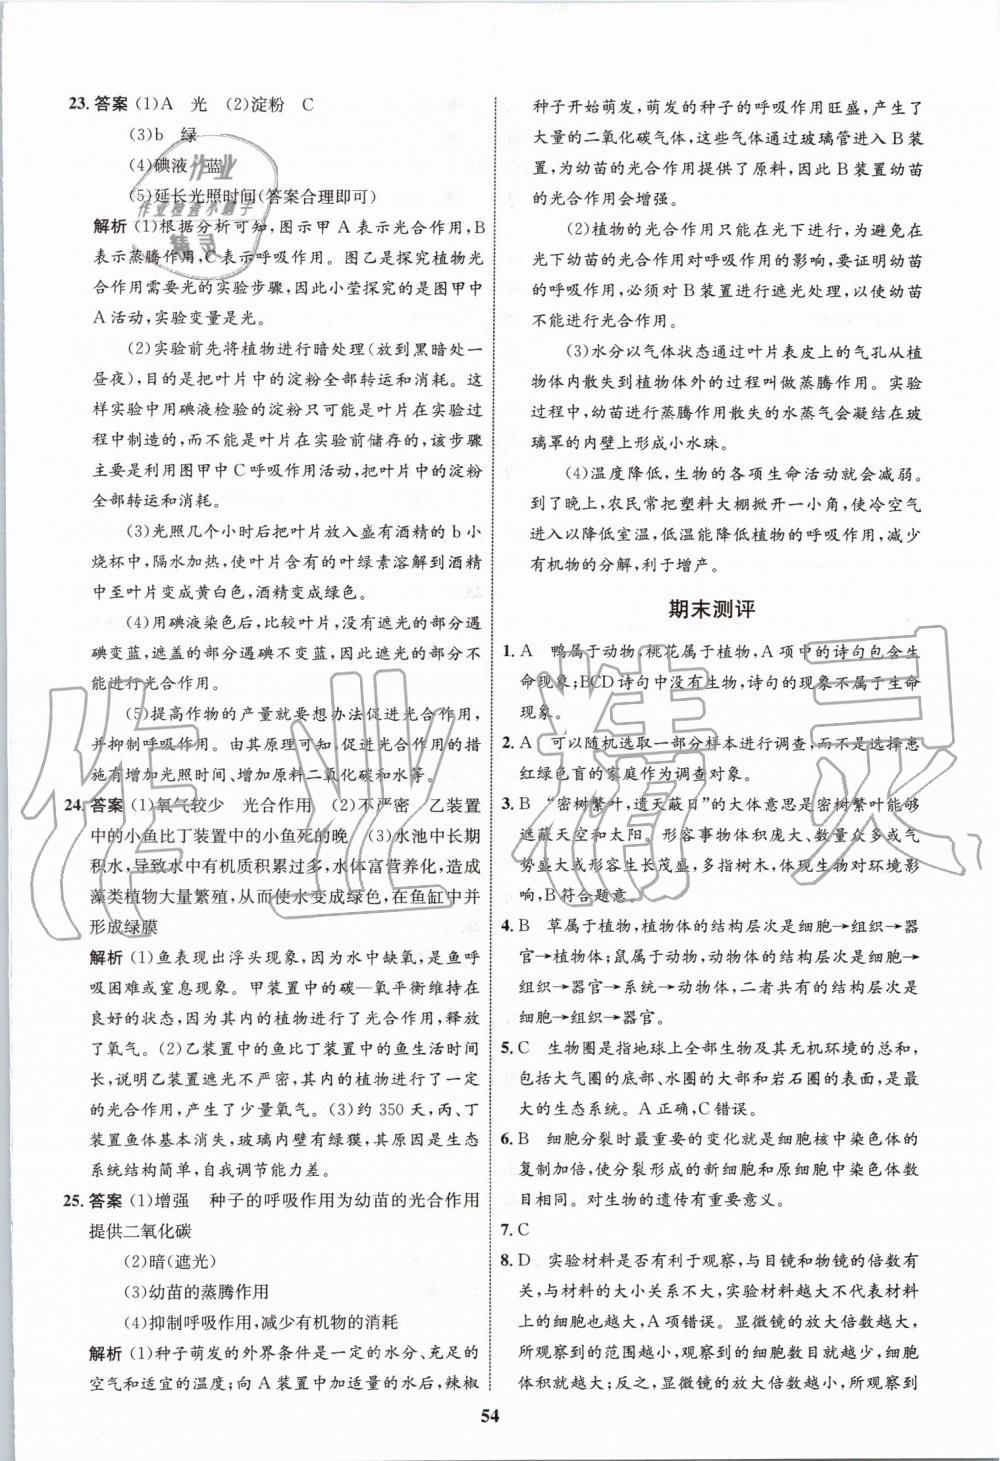 23. 答案 (1)A 光 (2)淀粉 C
(3)b 绿
(4)碘液 蓝
(5)延长光照时间(答案合理即可)
解析 (1)根据分析可知,图示甲 A 表示光合作用,B
表示蒸腾作用,C表示呼吸作用。图乙是探究植物光
合作用需要光的实验步骤,因此小莹探究的是图甲中
A 活动,实验变量是光。
(2)实验前先将植物进行暗处理(放到黑暗处一
昼夜),目的是把叶片中的淀粉全部转运和消耗。这
样实验中用碘液检验的淀粉只可能是叶片在实验过
程中制造的,而不能是叶片在实验前储存的,该步骤
主要是利用图甲中 C 呼吸作用活动,把叶片中的淀粉
全部转运和消耗。
(3)光照几个小时后把叶片放入盛有酒精的 b 小
烧杯中,隔水加热,使叶片含有的叶绿素溶解到酒精
中至叶片变成黄白色,酒精变成绿色。
(4)用碘液染色后,比较叶片,没有遮光的部分遇
碘变蓝,遮盖的部分遇碘不变蓝,因此遮光的部分不
能进行光合作用。
(5)提高作物的产量就要想办法促进光合作用,
并抑制呼吸作用。由其原理可知,促进光合作用的措
施有增加光照时间、增加原料二氧化碳和水等。
24. 答案 (1)氧气较少 光合作用 (2)不严密 乙装置
中的小鱼比丁装置中的小鱼死的晚 (3)水池中长期
积水,导致水中有机质积累过多,水体富营养化,造成
藻类植物大量繁殖,从而使水变成绿色,在鱼缸中并
形成绿膜
解析 (1)鱼表现出浮头现象,因为水中缺氧,是鱼呼
吸困难或窒息现象。甲装置中的碳—氧平衡维持在
良好的状态,因为其内的植物进行了光合作用,释放
了氧气。(2)乙装置中的鱼比丁装置中的鱼生活时间
长,说明乙装置遮光不严密,植物能够进行了一定的
的光合作用,产生了少量氧气。(3)约 350 天,丙、丁
装置鱼体基本消失,玻璃内壁有绿膜,其原因是生态
系统结构简单,自我调节能力差。
25. 答案 (1)增强 种子的呼吸作用为幼苗的光合作用
提供二氧化碳
(2)暗(遮光)
(3)幼苗的蒸腾作用
(4)抑制呼吸作用,减少有机物的消耗
解析 (1)种子萌发的外界条件是一定的水分、充足的
空气和适宜的温度;向 A 装置中加适量的水后,辣椒
种子开始萌发,萌发的种子的呼吸作用旺盛,产生了
大量的二氧化碳气体,这些气体通过玻璃管进入 B 装
置,为幼苗的光合作用提供了原料,因此 B 装置幼苗
的光合作用会增强。
(2)植物的光合作用只能在光下进行,为避免在
光下幼苗的光合作用对呼吸作用的影响,要证明幼苗
的呼吸作用,必须对 B 装置进行遮光处理,以使幼苗
不能进行光合作用。
(3)水分以气体状态通过叶片表皮上的气孔从植
物体内散失到植物体外的过程叫做蒸腾作用。实验
过程中,幼苗进行蒸腾作用散失的水蒸气会凝结在玻
璃罩的内壁上形成小水珠。
(4)温度降低,生物的各项生命活动就会减弱。
到了晚上,农民常把塑料大棚掀开一小角,使冷空气
进入以降低室温,低温能降低植物的呼吸作用,减少
有机物的分解,利于增产。
期末测评
1. A 鸭属于动物,桃花属于植物,A 项中的诗句包含生
命现象;BCD诗句中没有生物,诗句的现象不属于生命
现象。
2. A 可以随机选取一部分样本进行调查,而不是选择患
红绿色盲的家庭作为调查对象。
3. B “密树繁叶,遮天蔽日”的大体意思是密树繁叶能够
遮蔽天空和太阳。形容事物体积庞大、数量众多或气
势盛大或形容生长茂盛,多指树木,体现生物对环境影
响,B符合题意。
4. B 草属于植物,植物体的结构层次是细胞→组织→器
官→植物体;鼠属于动物,动物体的结构层次是细胞→
组织→器官→系统→动物体,二者共有的结构层次是
细胞→组织→器官。
5. C 生物圈是指地球上全部生物及其无机环境的总和,
包括大气圈的底部、水圈的大部和岩石圈的表面,是最
大的生态系统。A 正确,C 错误。
6. B 细胞分裂时最重要的变化就是细胞核中染色体的
复制加倍,分裂形成的新细胞和原细胞中染色体数
目相同。对生物的遗传有重要意义。
7. C
8. D 实验材料是否有利于观察,与目镜和物镜的倍数有
关,与材料的大小关系不大,实验材料越大不代表材料
细胞也越大,A 项错误。显微镜的放大倍数越大,
所观察的范围越小,观察到的细胞数目就越少,但细胞
体积就越大;反之,显微镜的放大倍数越小,所观察到
54
作业
作业检查小助手
精灵
作业精灵